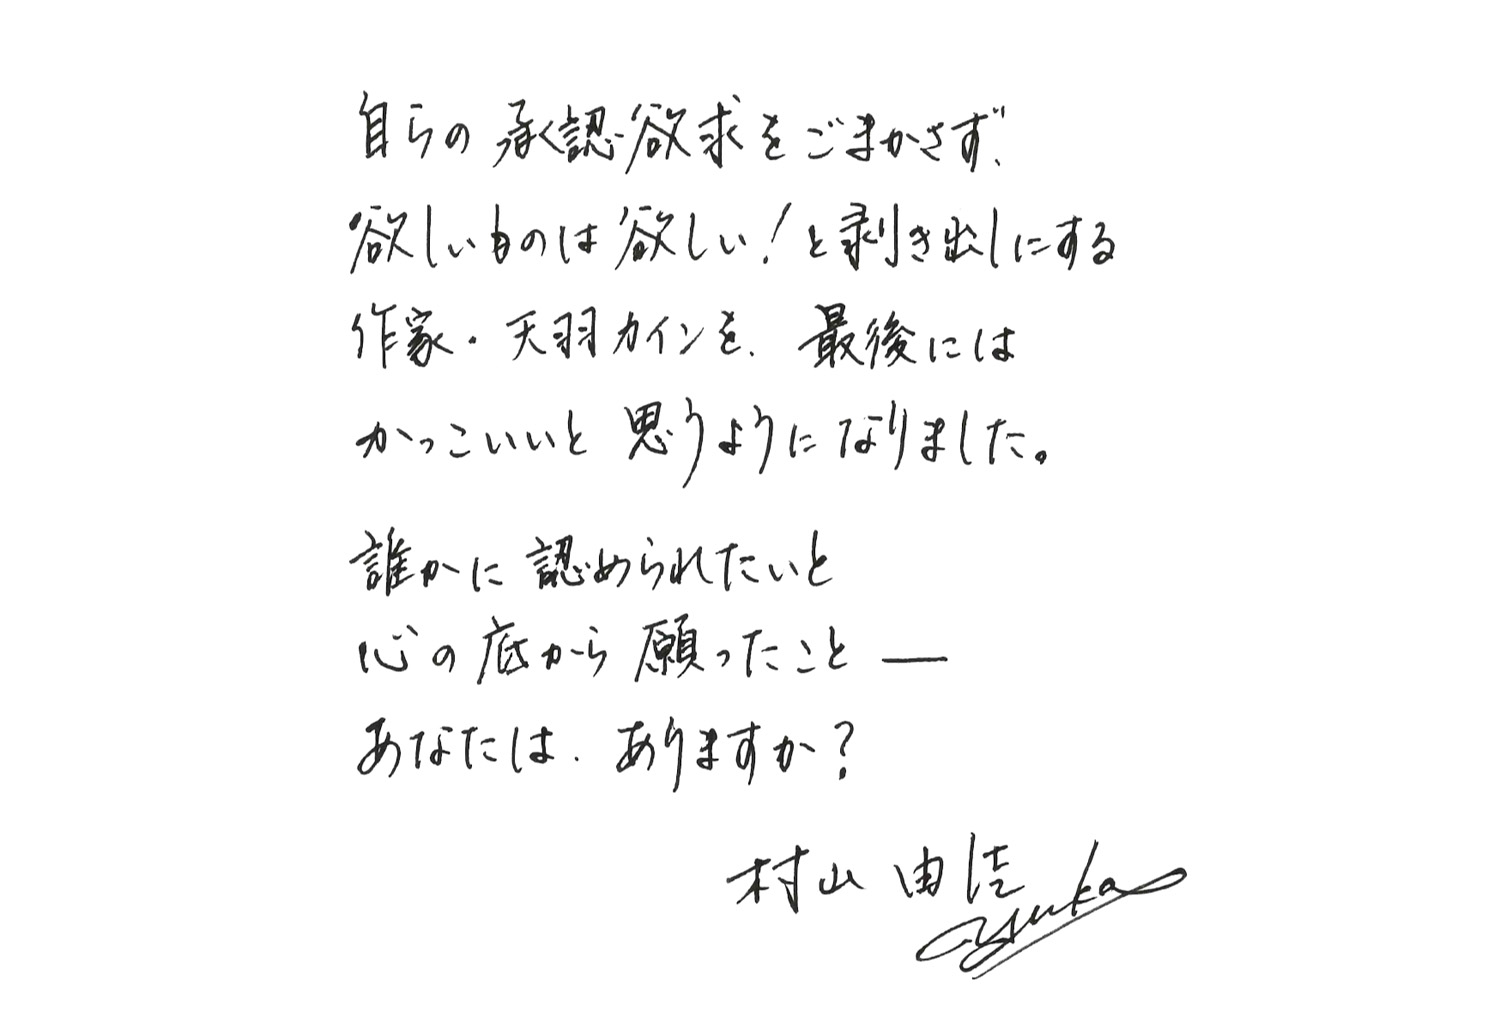 自らの承認欲求をごまかさず、
欲しいものは欲しい！と剥き出しにする
作家・天羽カインを、最後には
かっこいいと思うようになりました。
誰かに認められたいと
心の底から願ったこと―
あなたは、ありますか？
村山由佳
yuka